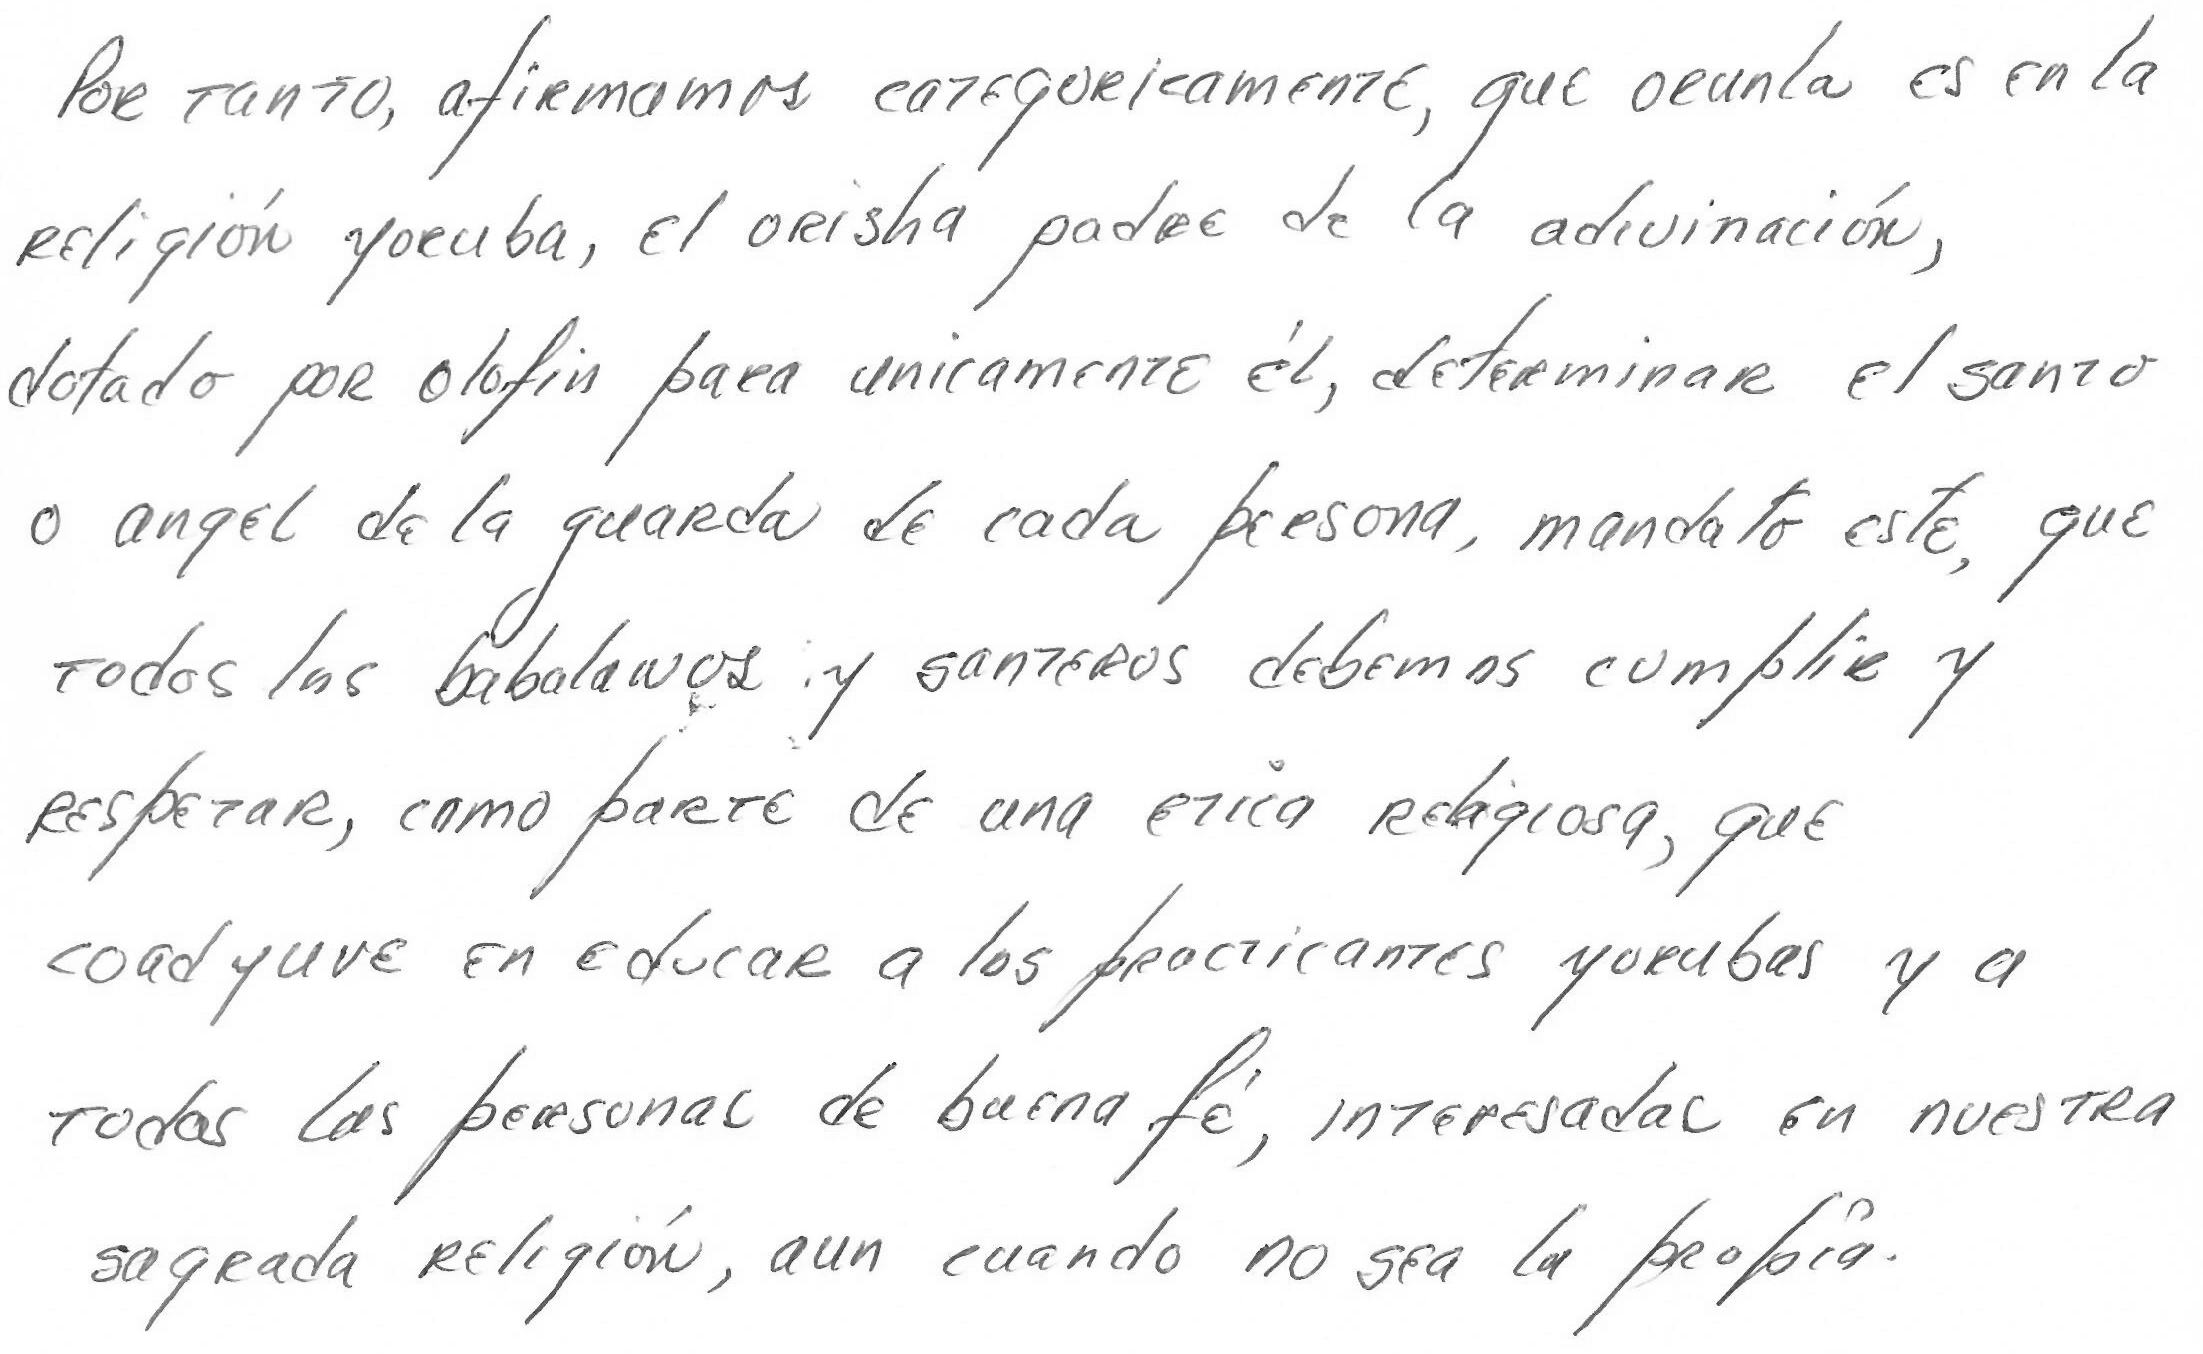 Por tanto, afirmamos categoricamente, que orunla es en la
religión yoruba, el orisha padre de la adivinación,
dotado por olofin para unicamente él, determinar el santo
o angel de la guarda de cada persona, mandato este, que
todos los babalawos y santeros debemos cumplir y
respetar, como parte de una etica religiosa, que
coadyuve en educar a los practicantes yorubas y a
todas las personas de buena fé, interesadas en nuestra
sagrada religión, aun cuando no sea la propia.